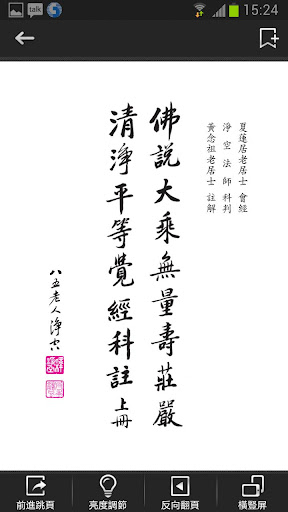 talk
15:24
夏蓮居老居士 會經
淨空法師 科判
黃念祖老居士 註解
佛說大乘無量壽莊嚴
清淨平等覺經科註 上冊
八五老人淨空
前進跳頁
亮度調節
反向翻頁
橫豎屏